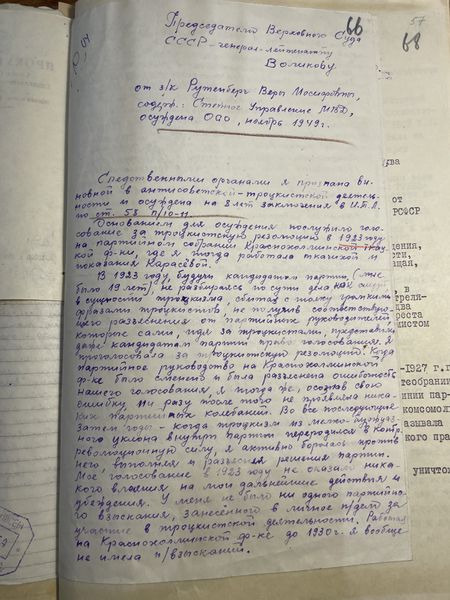 66
57
68
Председателю Верховного Суда
СССР - генерал-лейтенанту
Волинову
от з/к Рутенберг Веры Иосифовны,
содерж.: Степное Управление МВД,
осуждена Осо, ноябрь 1949г.
Следственными органами я признана ви-
новной в антисоветской-троцкистской деятель-
ности и осуждена на 8 лет заключения в И.Т.Л.
по ст. 58 п/10-11.
Основанием для осуждения послужило голо-
сование за троцкистскую резолюцию в 1923 году
на партийном собрании Краснохолминской ткац-
кой ф-ке, где я тогда работала ткачихой и
показания Карасёвой.
В 1923 году, будучи кандидатом партии, (мне
было 19 лет), не разбираясь по сути дела
в сущности троцкизма, сбитая с толку громкими
фразами троцкистов, не получив соответствую-
щего разъяснения от партийного руководителей,
которые сами, идя за троцкистами, предоставили
даже кандидатам партии право голосования, я
проголосовала за троцкистскую резолюцию. Когда
партийное руководство на Краснохолминской
ф-ке было сменено и была разъяснена ошибочность
нашего голосования, я тогда же, осознав свою
ошибку ни разу после того не проявляла ника-
ких партийных колебаний. Во все последующие
затем годы - когда троцкизм из мелко-буржуаз-
ного уклона внутри партии переродился в контр-
революционную силу, я активно боролась против
него, выполняя и разъясняя решения партии.
Мое голосование в 1923 году не оказало ника-
кого влияния на мои дальнейшие действия и
убеждения. У меня не было ни одного партийно-
го взыскания, занесённого в личное п/дело за
участие в троцкистской деятельности. Работая
на Краснохолминской ф-ке до 1930г. я вообще
не имела п/взысканий.
от
РСФСР
дения,
рти,
щая,
, в
треля-
два
реста
нистом
-1927 г.г
теобрани
инии пар-
комсомол
азвала
кого пра
уничто